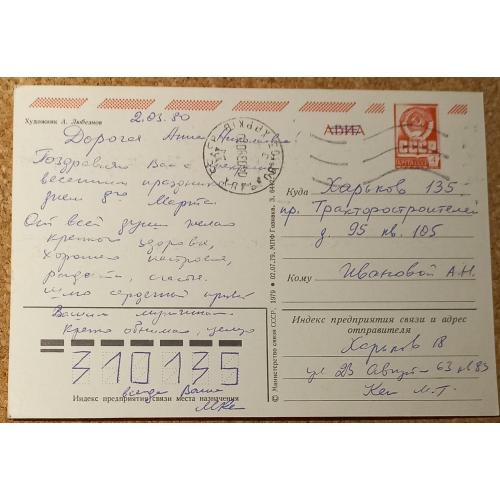 Художник А. Любезнов
2.03.80
Дорогая Анна Николаевна!
Поздравляю Вас с
весенним праздником
днем 8го Марта.
От всей души желаю
крепкого здоровья,
хорошего настроения,
радости, счастья.
Шлю сердечный привет
Вашим
Крепко обнимаю, целую
310135
всегда Ваша
МКен
Индекс предприятия связи места назначения
© Министерство связи СССР. 1979 ● 02.07.79. МПФ Гознака. З.
АВИА
СССР
ПОЧТА
4
ХАРЬКІВ
Куда Харьков 135-
пр. Тракторостроителей
д. 95 кв. 105
Кому Ивановой А.Н.
Индекс предприятия связи и адрес
отправителя
Харьков 18
ул 23 Августа 63 кв 83
Кен М.Т.